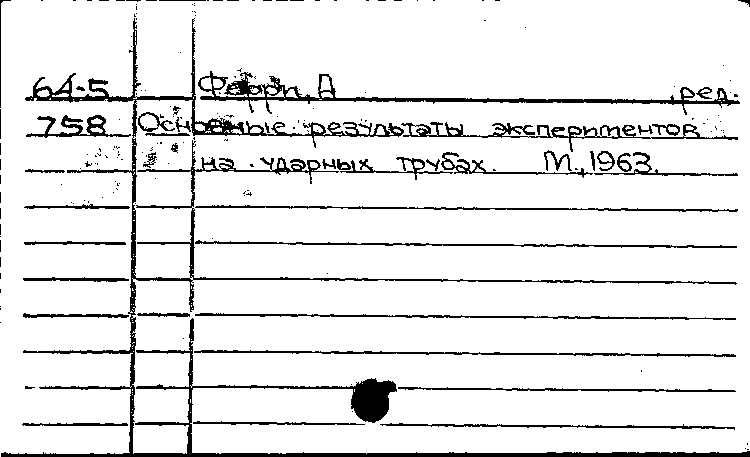 64-5 Ферри, А ,ред.
758 Основные результаты экспериментов
на ударных трубах. М.,1963.